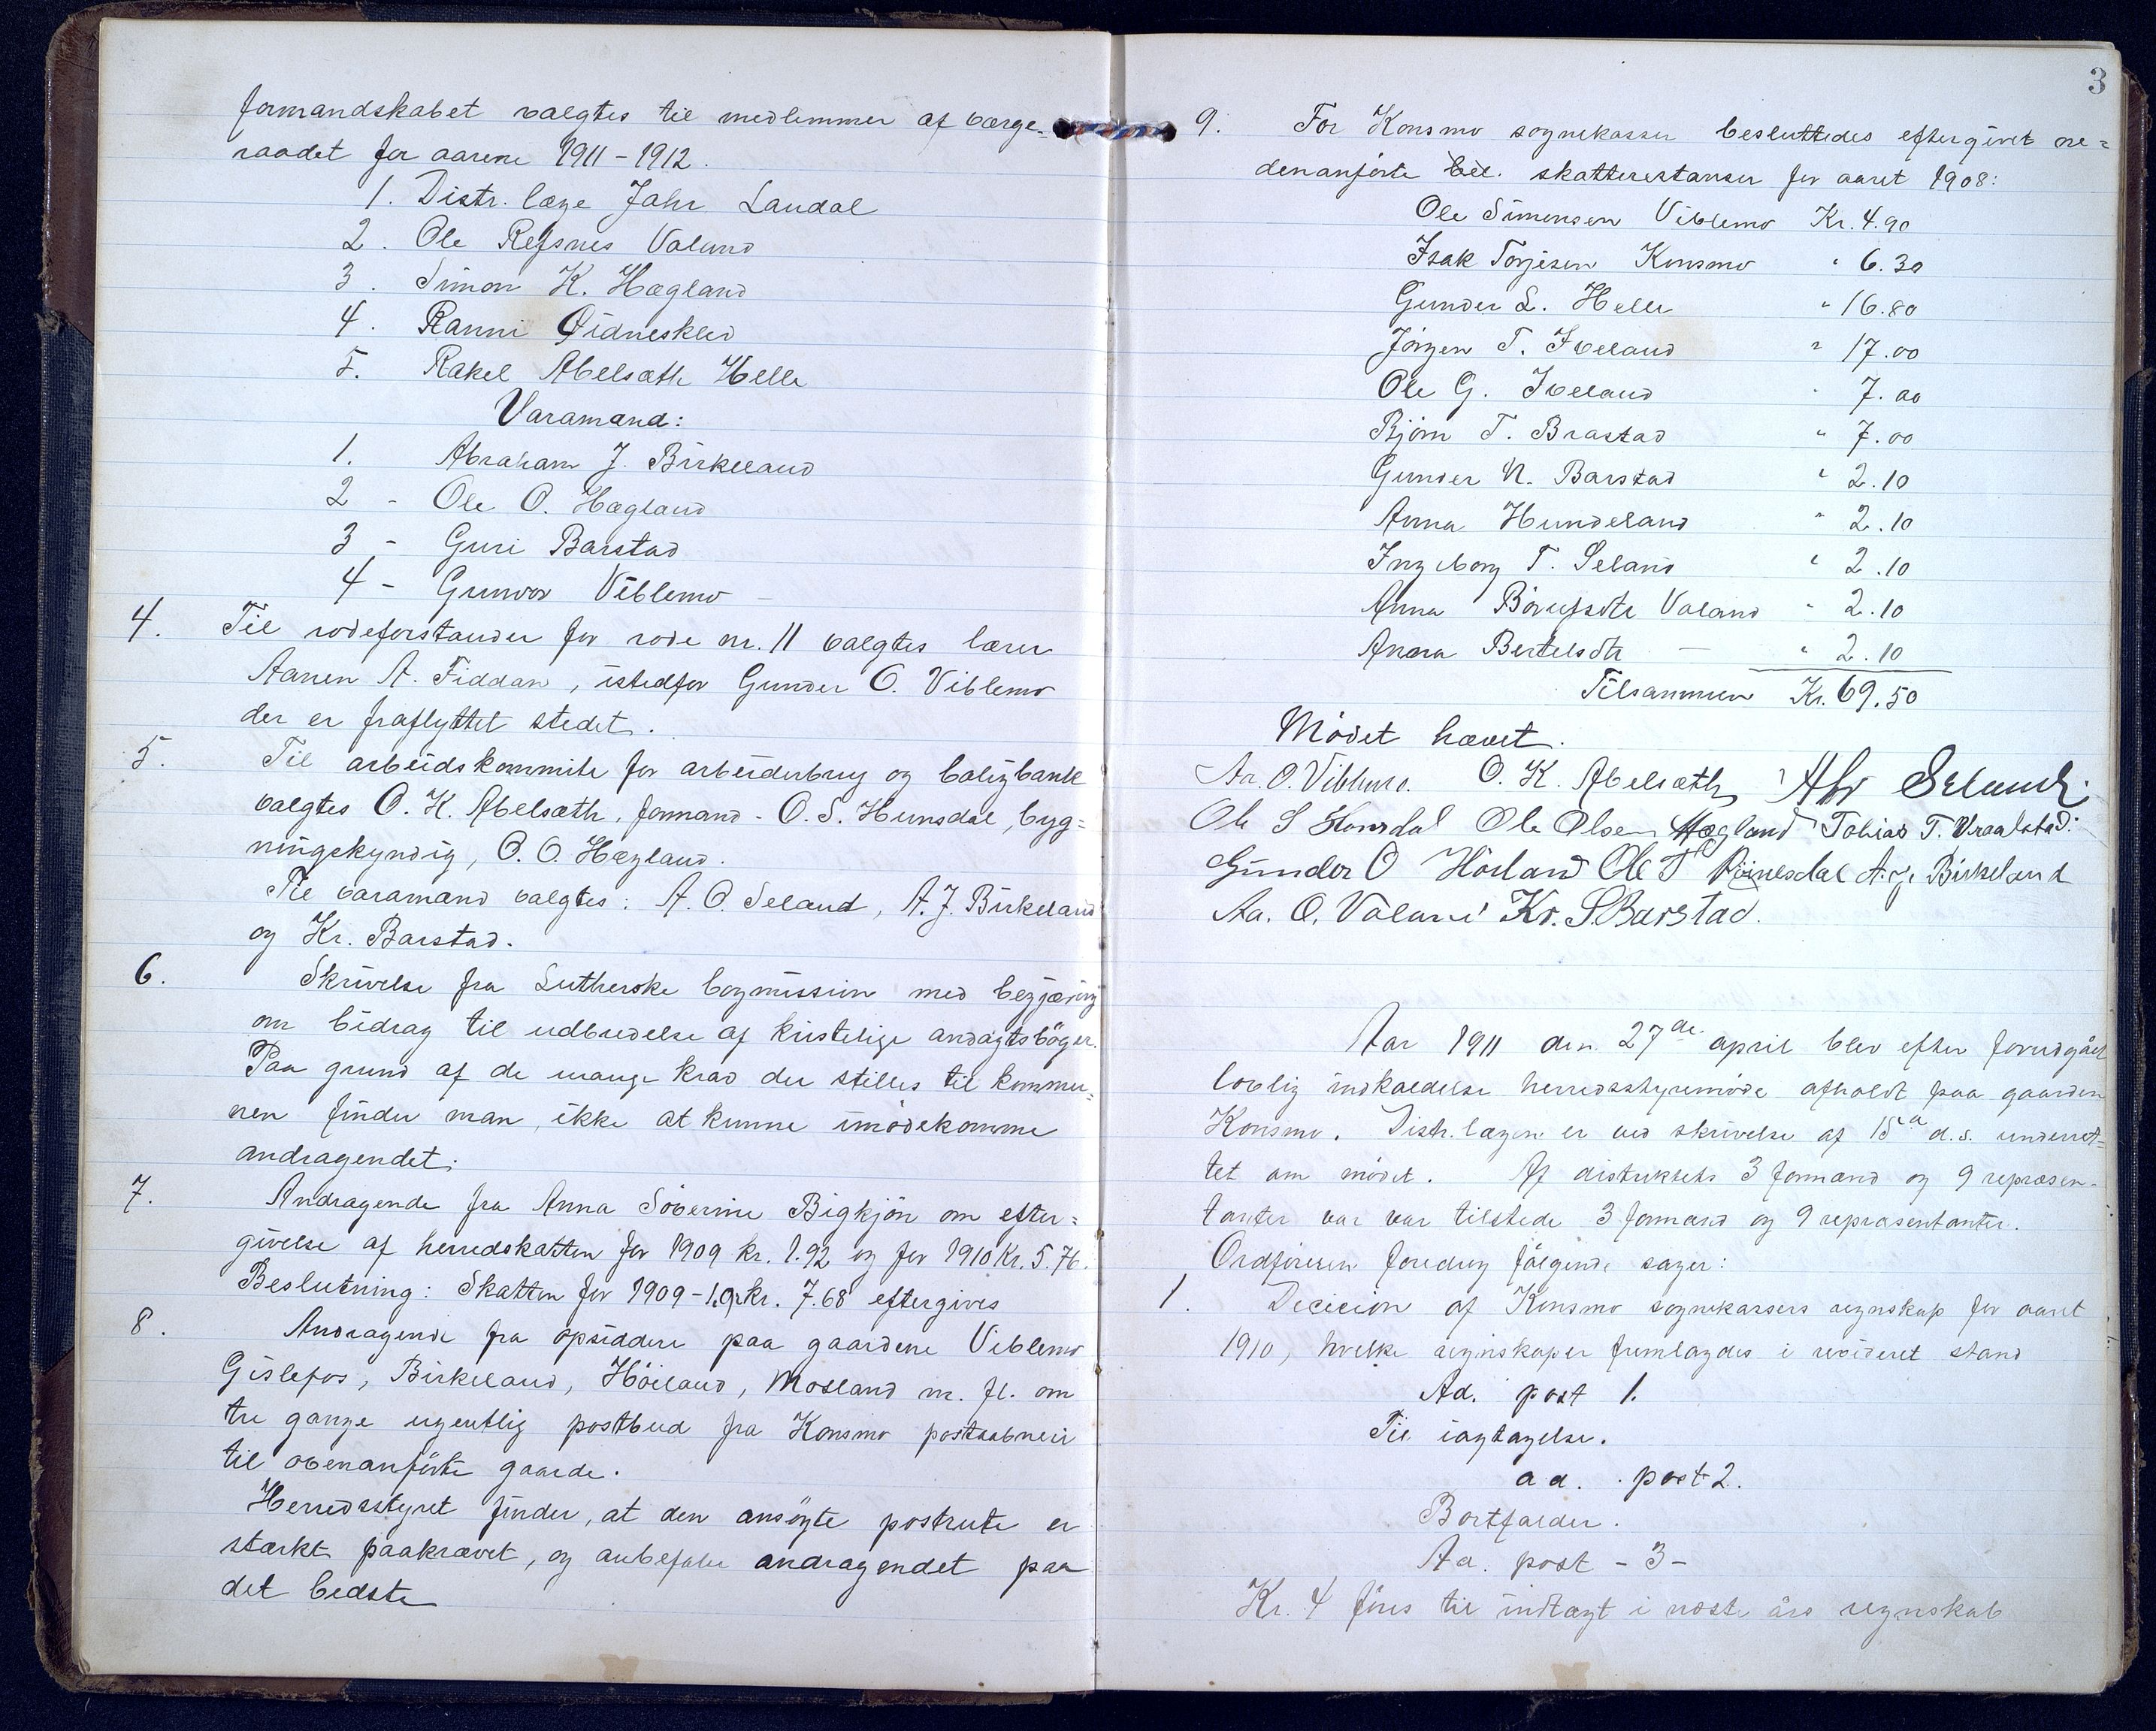 formandskabet valgtes til medlemmer af værge-
raadet for aarene 1911-1912.
1. Distr. læge Jahr Laudal
2. Ole Refsnes Valand
3. Simon K. Hægland
4. Ranni Øidnesklev
5. Rakel Abelsæth Helle
Varamænd:
1. Abraham J. Birkeland
2 - Ole O. Hægland
3 - Guri Barstad
4 - Gunvor Viblemo -
4. Til rodeforstander for rode nr. 11 valgtes lærer
Aanen A. Fiddan, istedfor Gunder O. Viblemo
der er fraflyttet stedet.
5. Til arbeidskommite for arbeiderbrug og boligbank
valgtes O. K. Abelsæth, formand - O. S. Hunsdal, byg=
ningskyndig, O. O. Hægland.
Til varamænd valgtes: A. O. Seland, A. J. Birkeland
og Kr. Barstad.
6. Skrivelse fra Lutherske bogmission med begjæring
om bidrag til udbredelse af kristelige andagtsbøger.
Paa grund af de mange krav der stilles til kommu=
nen finder man ikke at kunne imødekomme
andragendet.
7. Andragende fra Anna Söverine Bigkjön om efter=
givelse af herredskatten for 1909 kr. 1.92 og for 1910 Kr. 5.76.
Beslutning: Skatten for 1909-1910 kr. 7.68 eftergives
8. Andragende fra opsiddere paa gaardene Viblemo
Gislefos, Birkeland, Höiland, Mosland m. fl. om
tre gange ugentlig postbud fra Konsmo postaabneri
til ovenanførte gaarde.
Herredsstyret finder, at den ansögte postrute er
stærkt paakrævet, og anbefaler andragendet paa
det bedste
3
9. For Konsmo sognekasser besluttedes eftergivet ne=
denanførte bil. skatterestanser for aaret 1908:
Ole Simensen Viblemo Kr. 4.90
Isak Torjesen Konsmo " 6.30
Gunder L. Helle " 16.80
Jörgen T. Ioeland " 17.00
Ole G. Ioeland " 7.00
Bjørn T. Brastad " 7.00
Gunder N. Barstad " 2.10
Anna Hundeland " 2.10
Ingeborg T. Seland " 2.10
Anna Valand " 2.10
Anna Bertelsdtr — " 2.10
Tilsammen Kr. 69.50
Mödet hævet.
Aa. O. Viblemo. O. K. Abelsæth Abr Seland.
Ole S Hunsdal Ole Olsen Hægland Tobias T. Vraalstad.
Gunder O Hörland Ole T A. J. Birkeland
Aa. O. Valand Kr. S. Barstad.
Aar 1911 den 27de april blev efter forudgået
lovlig indkaldelse herredsstyremöde afholdt paa gaarden
Konsmo. Distr.lægen er ved skrivelse af 15de d.s. underret=
tet om mödet. Af distriktets 3 formænd og 9 repræsen-
tanter var var tilstede 3 formænd og 9 repræsentanter.
Ordføreren foredrog følgende sager:
1. Decicion af Konsmo sognekassers regnskap for aaret
1910, hvilke regnskaper fremlagdes i revideret stand
Ad. post 1.
Til iagtagelse.
ad. post 2.
Bortfalder.
Ad. post - 3-
Kr. 4 föres til indtægt i næste års regnskab